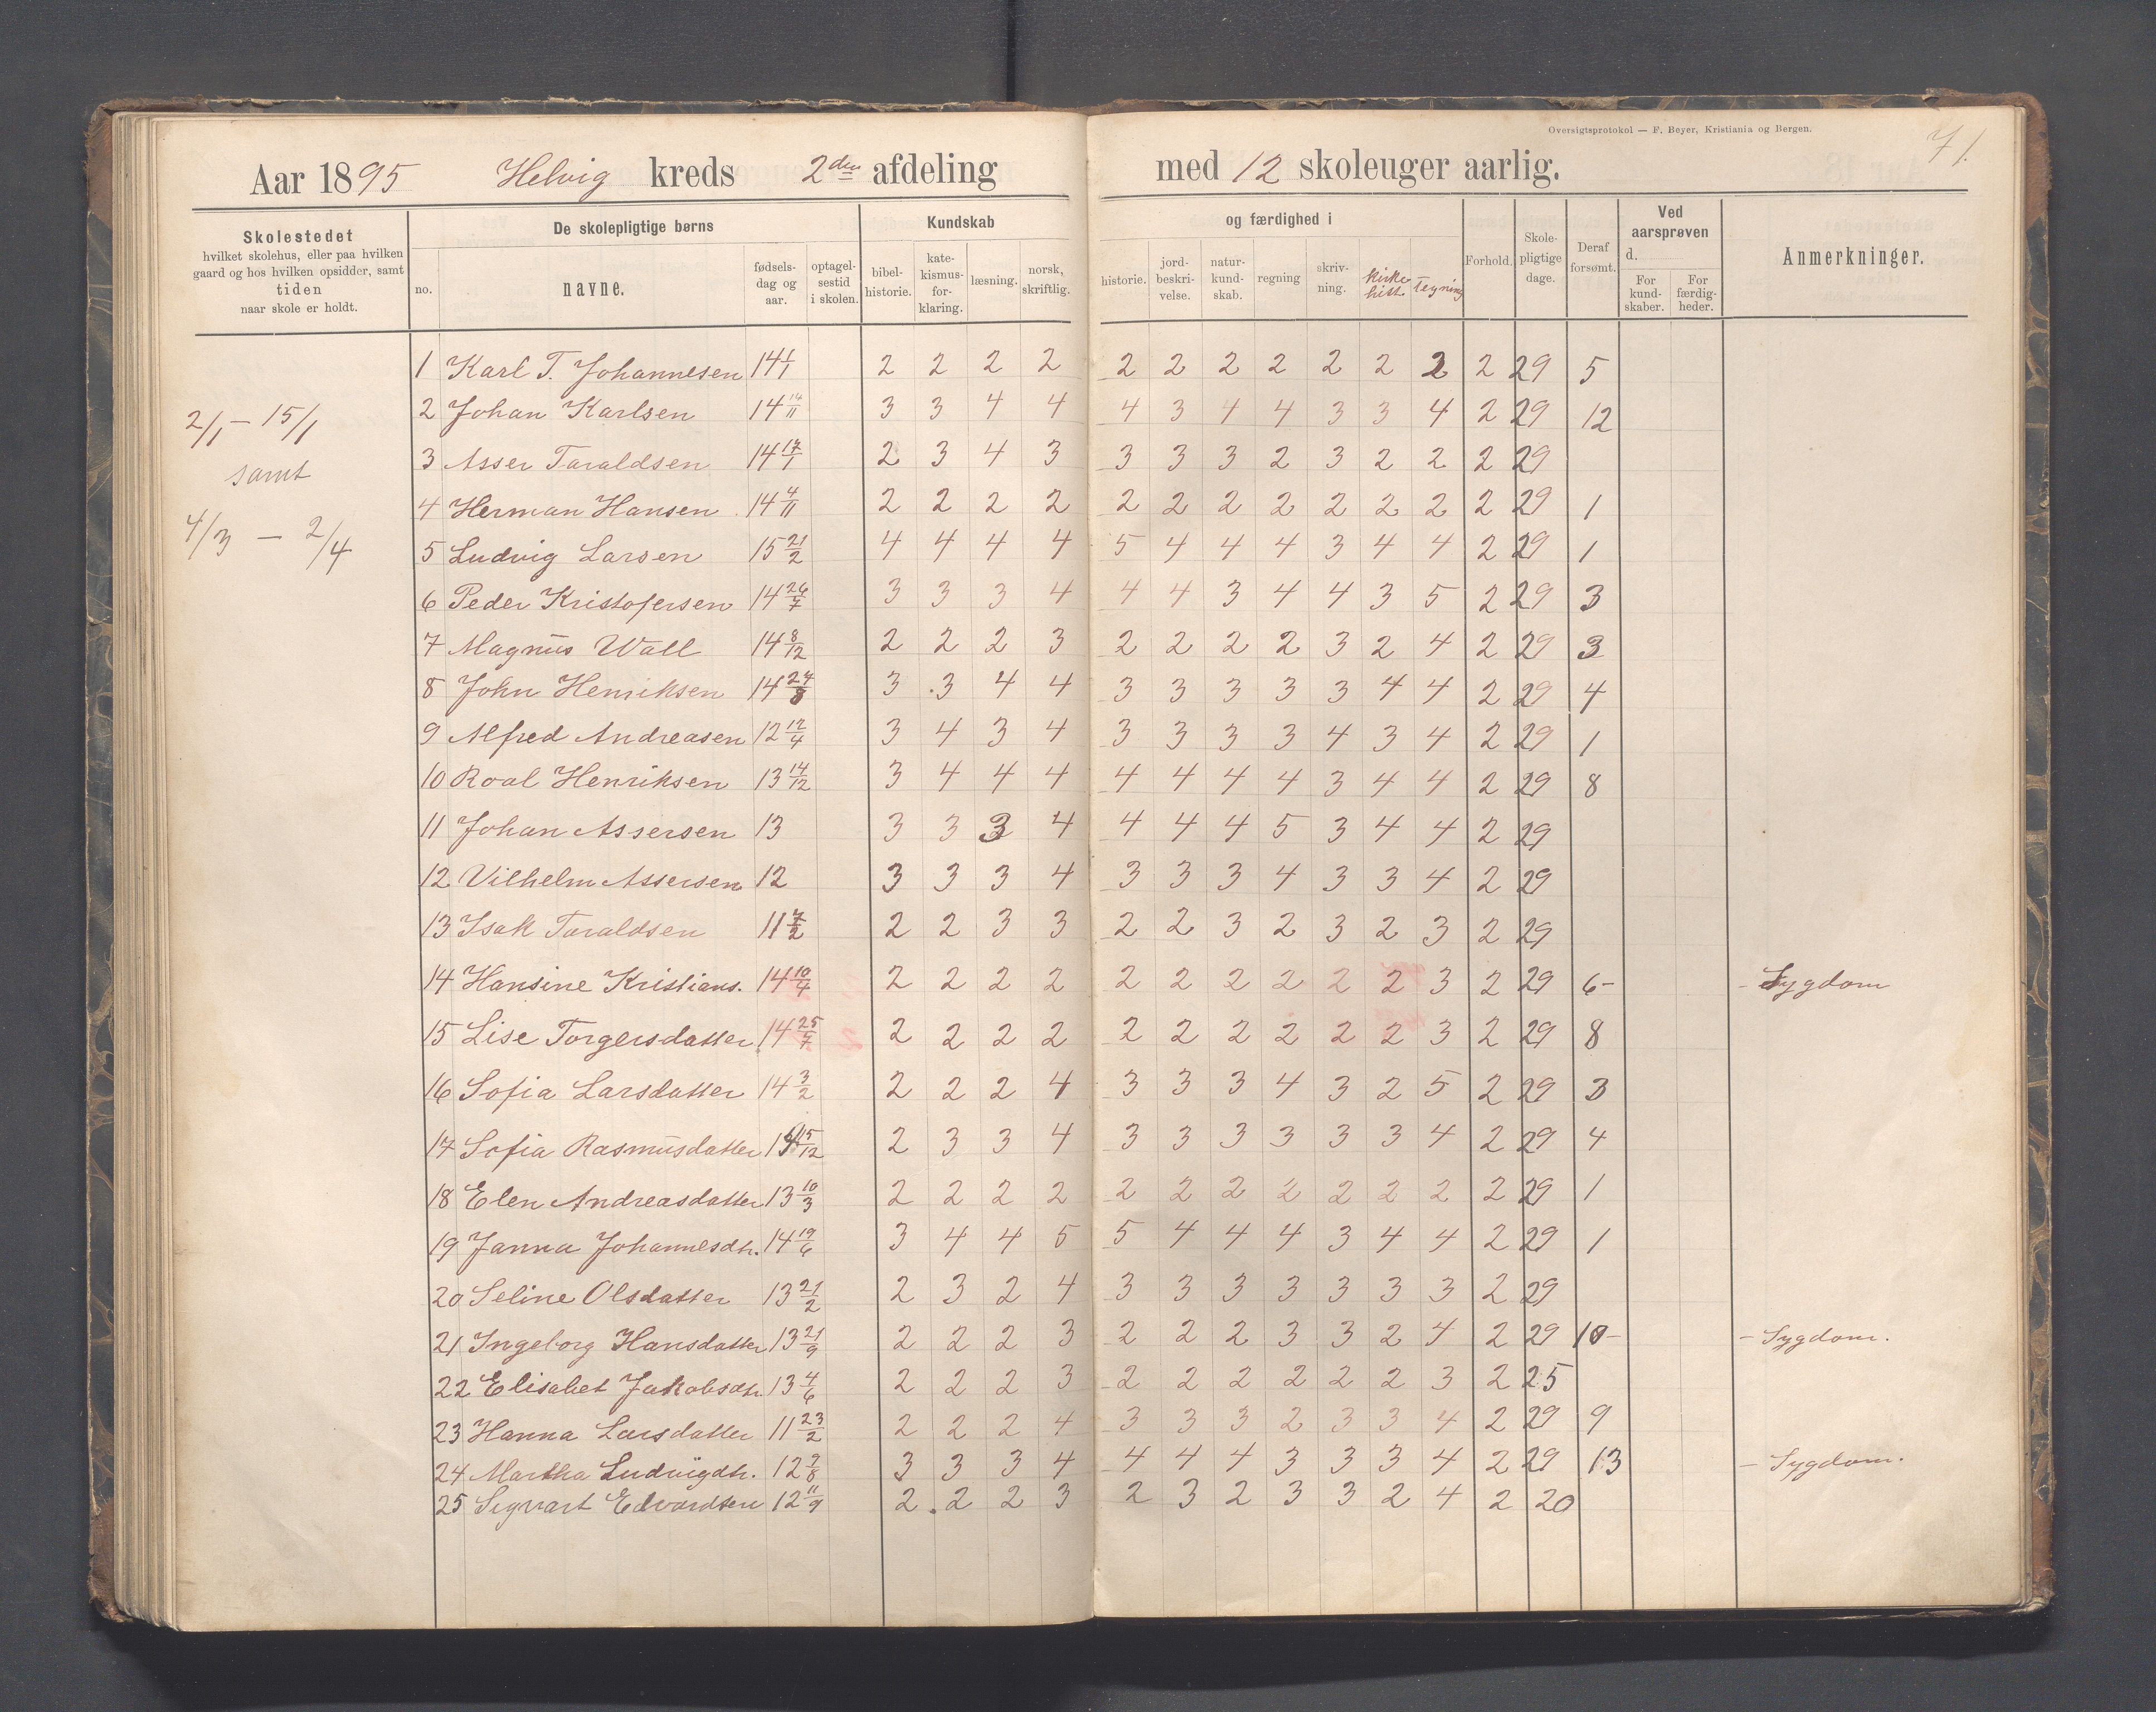 Oversigtsprotokol — F. Beyer, Kristiania og Bergen.
71.
Aar 1895 Helvig kreds 2den afdeling med 12 skoleuger aarlig.
Skolestedet
hvilket skolehus, eller paa hvilken
gaard og hos hvilken opsidder, samt
tiden
naar skole er holdt.
De skolepligtige børns
no.
navne.
fødsels-
dag og
aar.
optagel-
sestid
i skolen.
Kundskab
bibel-
historie.
kate-
kismus-
for-
klaring.
læsning.
norsk,
skriftlig.
og færdighed i
historie.
jord-
beskri-
velse.
natur-
kund-
skab.
regning
skriv-
ning.
Kirke
hist.
Tegning
Forhold.
Skole-
pligtige
dage.
Deraf
forsømt.
Ved
aarsprøven
d.
For
kund-
skaber.
For
færdig-
heder.
Anmerkninger.
2/1 – 15/1
samt
4/3 – 2/4
1 Karl T. Johannesen 14 1/1 2 2 2 2 2 2 2 2 2 2 2 2 29 5
2 Johan Karlsen 14 14/11 3 3 4 4 4 3 4 4 3 3 4 2 29 12
3 Asser Taraldsen 14 17/1 2 3 4 3 3 3 3 2 3 2 2 2 29
4 Herman Hansen 14 4/11 2 2 2 2 2 2 2 2 2 2 2 2 29 1
5 Ludvig Larsen 15 21/2 4 4 4 4 5 4 4 4 3 4 4 2 29 1
6 Peder Kristofersen 14 26/7 3 3 3 4 4 4 3 4 4 3 5 2 29 3
7 Magnus Wall 14 8/12 2 2 2 3 2 2 2 2 3 2 4 2 29 3
8 John Henriksen 14 24/8 3 3 4 4 3 3 3 3 3 4 4 2 29 4
9 Alfred Andreasen 12 12/4 3 4 3 4 3 3 3 3 4 3 4 2 29 1
10 Roal Henriksen 13 14/12 3 4 4 4 4 4 4 4 3 4 4 2 29 8
11 Johan Assersen 13 3 3 3 4 4 4 4 5 3 4 4 2 29
12 Vilhelm Assersen 12 3 3 3 4 3 3 3 4 3 3 4 2 29
13 Isak Taraldsen 11 7/2 2 2 3 3 2 2 3 2 3 2 3 2 29
14 Hansine Kristians. 14 10/4 2 2 2 2 2 2 2 2 2 2 3 2 29 6 – – Sygdom
15 Lise Torgersdatter 14 25/7 2 2 2 2 2 2 2 2 2 2 3 2 29 8
16 Sofia Larsdatter 14 3/2 2 2 2 4 3 3 3 4 3 2 5 2 29 3
17 Sofia Rasmusdatter 14 15/12 2 3 3 4 3 3 3 3 3 3 4 2 29 4
18 Elen Andreasdatter 13 10/3 2 2 2 2 2 2 2 2 2 2 2 2 29 1
19 Janna Johannesdtr. 14 19/6 3 4 4 5 5 4 4 4 3 4 4 2 29 1
20 Seline Olsdatter 13 21/2 2 3 2 4 3 3 3 3 3 3 3 2 29
21 Ingeborg Hansdatter 13 21/9 2 2 2 3 2 2 2 3 3 2 4 2 29 10 – – Sygdom.
22 Elisabet Jakobsdtr. 13 4/6 2 2 2 3 2 2 2 2 2 2 3 2 25
23 Hanna Larsdatter 11 23/2 2 2 2 4 3 3 3 2 3 3 4 2 29 9
24 Martha Ludvigdtr. 12 7/8 3 3 3 4 4 4 4 3 3 3 4 2 29 13 – Sygdom.
25 Sigvart Edvardsen 12 11/9 2 2 2 3 2 3 2 3 3 2 4 2 20